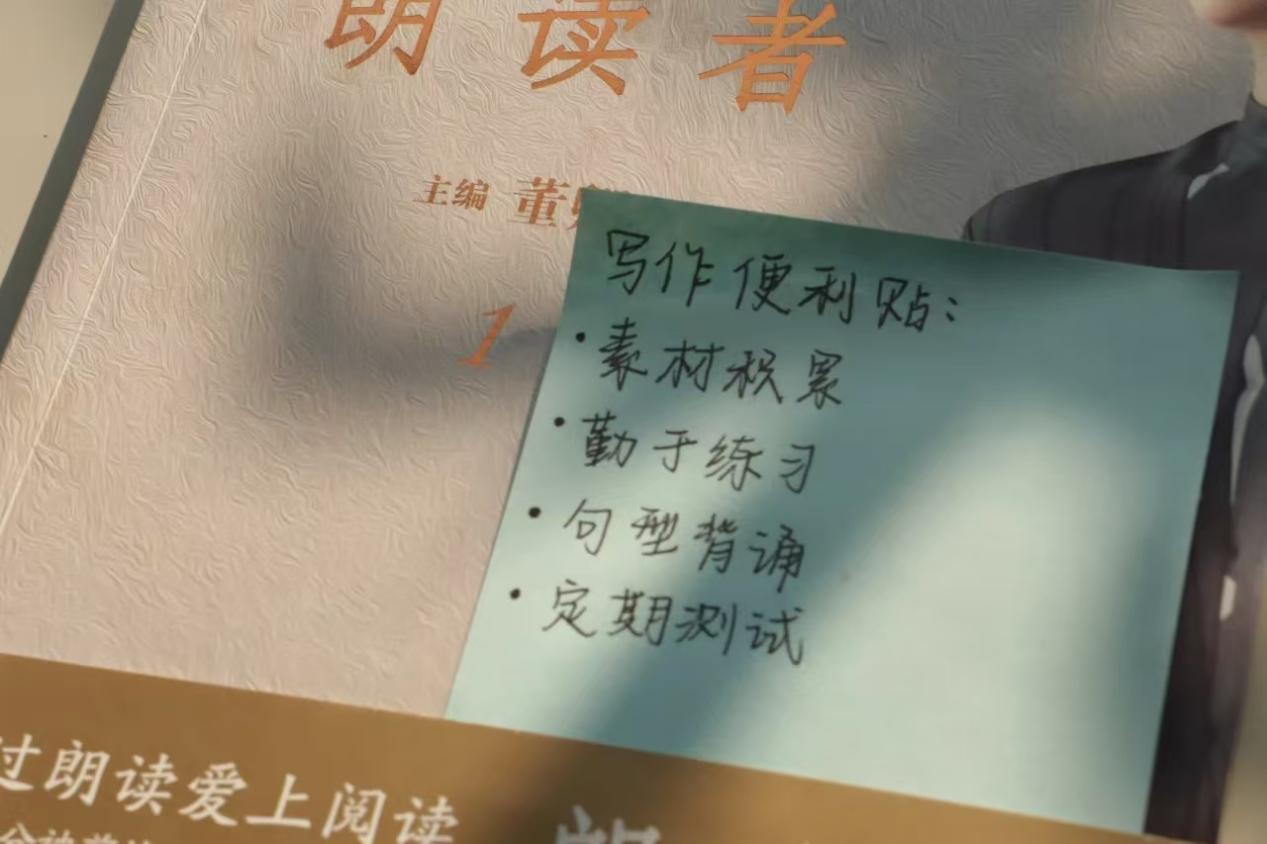 朗读者
主编 董
1
写作便利贴：
·素材积累
·勤于练习
·句型背诵
·定期测试
过朗读爱上阅读